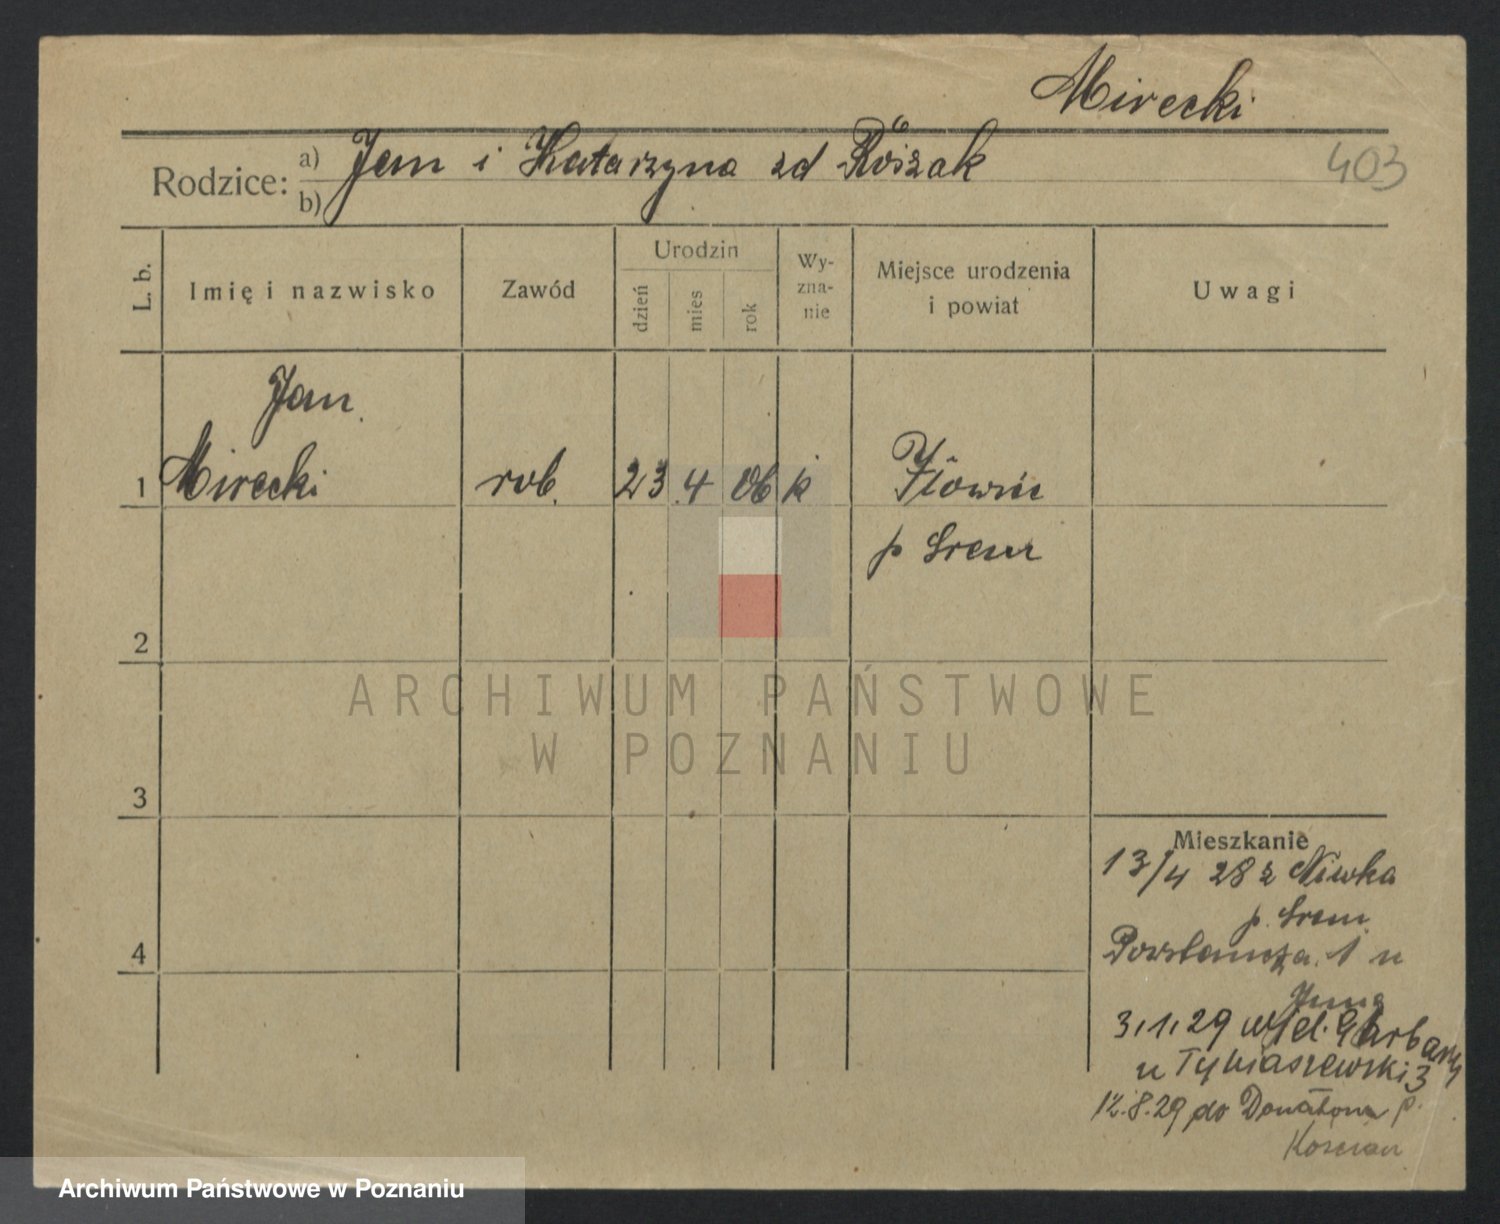 Mirecki
Rodzice: a) Jan i Katarzyna zd Różak
b)
403
L. b.
Imię i nazwisko
Zawód
Urodzin
dzień
mies
rok
Wy-
zna-
nie
Miejsce urodzenia
i powiat
Uwagi
Jan
1 Mirecki rob. 23 4 06 k Iłowiec
p Śrem
2
ARCHIWUM PAŃSTWOWE
W POZNANIU
3
Mieszkanie
13/4 28 z Niwka
p. Śrem
4
1 u
3.1.29 Garbary
u Tymiaszewski 3
12.8.29 do Donatowa p.
Kościan
Archiwum Państwowe w Poznaniu